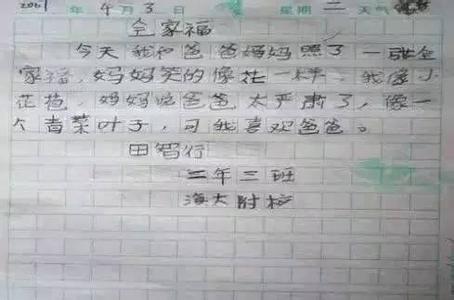 2001年4月3日 星期二 天气
全家福
今天我和爸爸妈妈照了一张全
家福，妈妈笑的像花一样。我像小
花苞，妈妈说爸爸太严肃了，像一
个青菜叶子，可我喜欢爸爸。
田智行
二年三班
海大附校